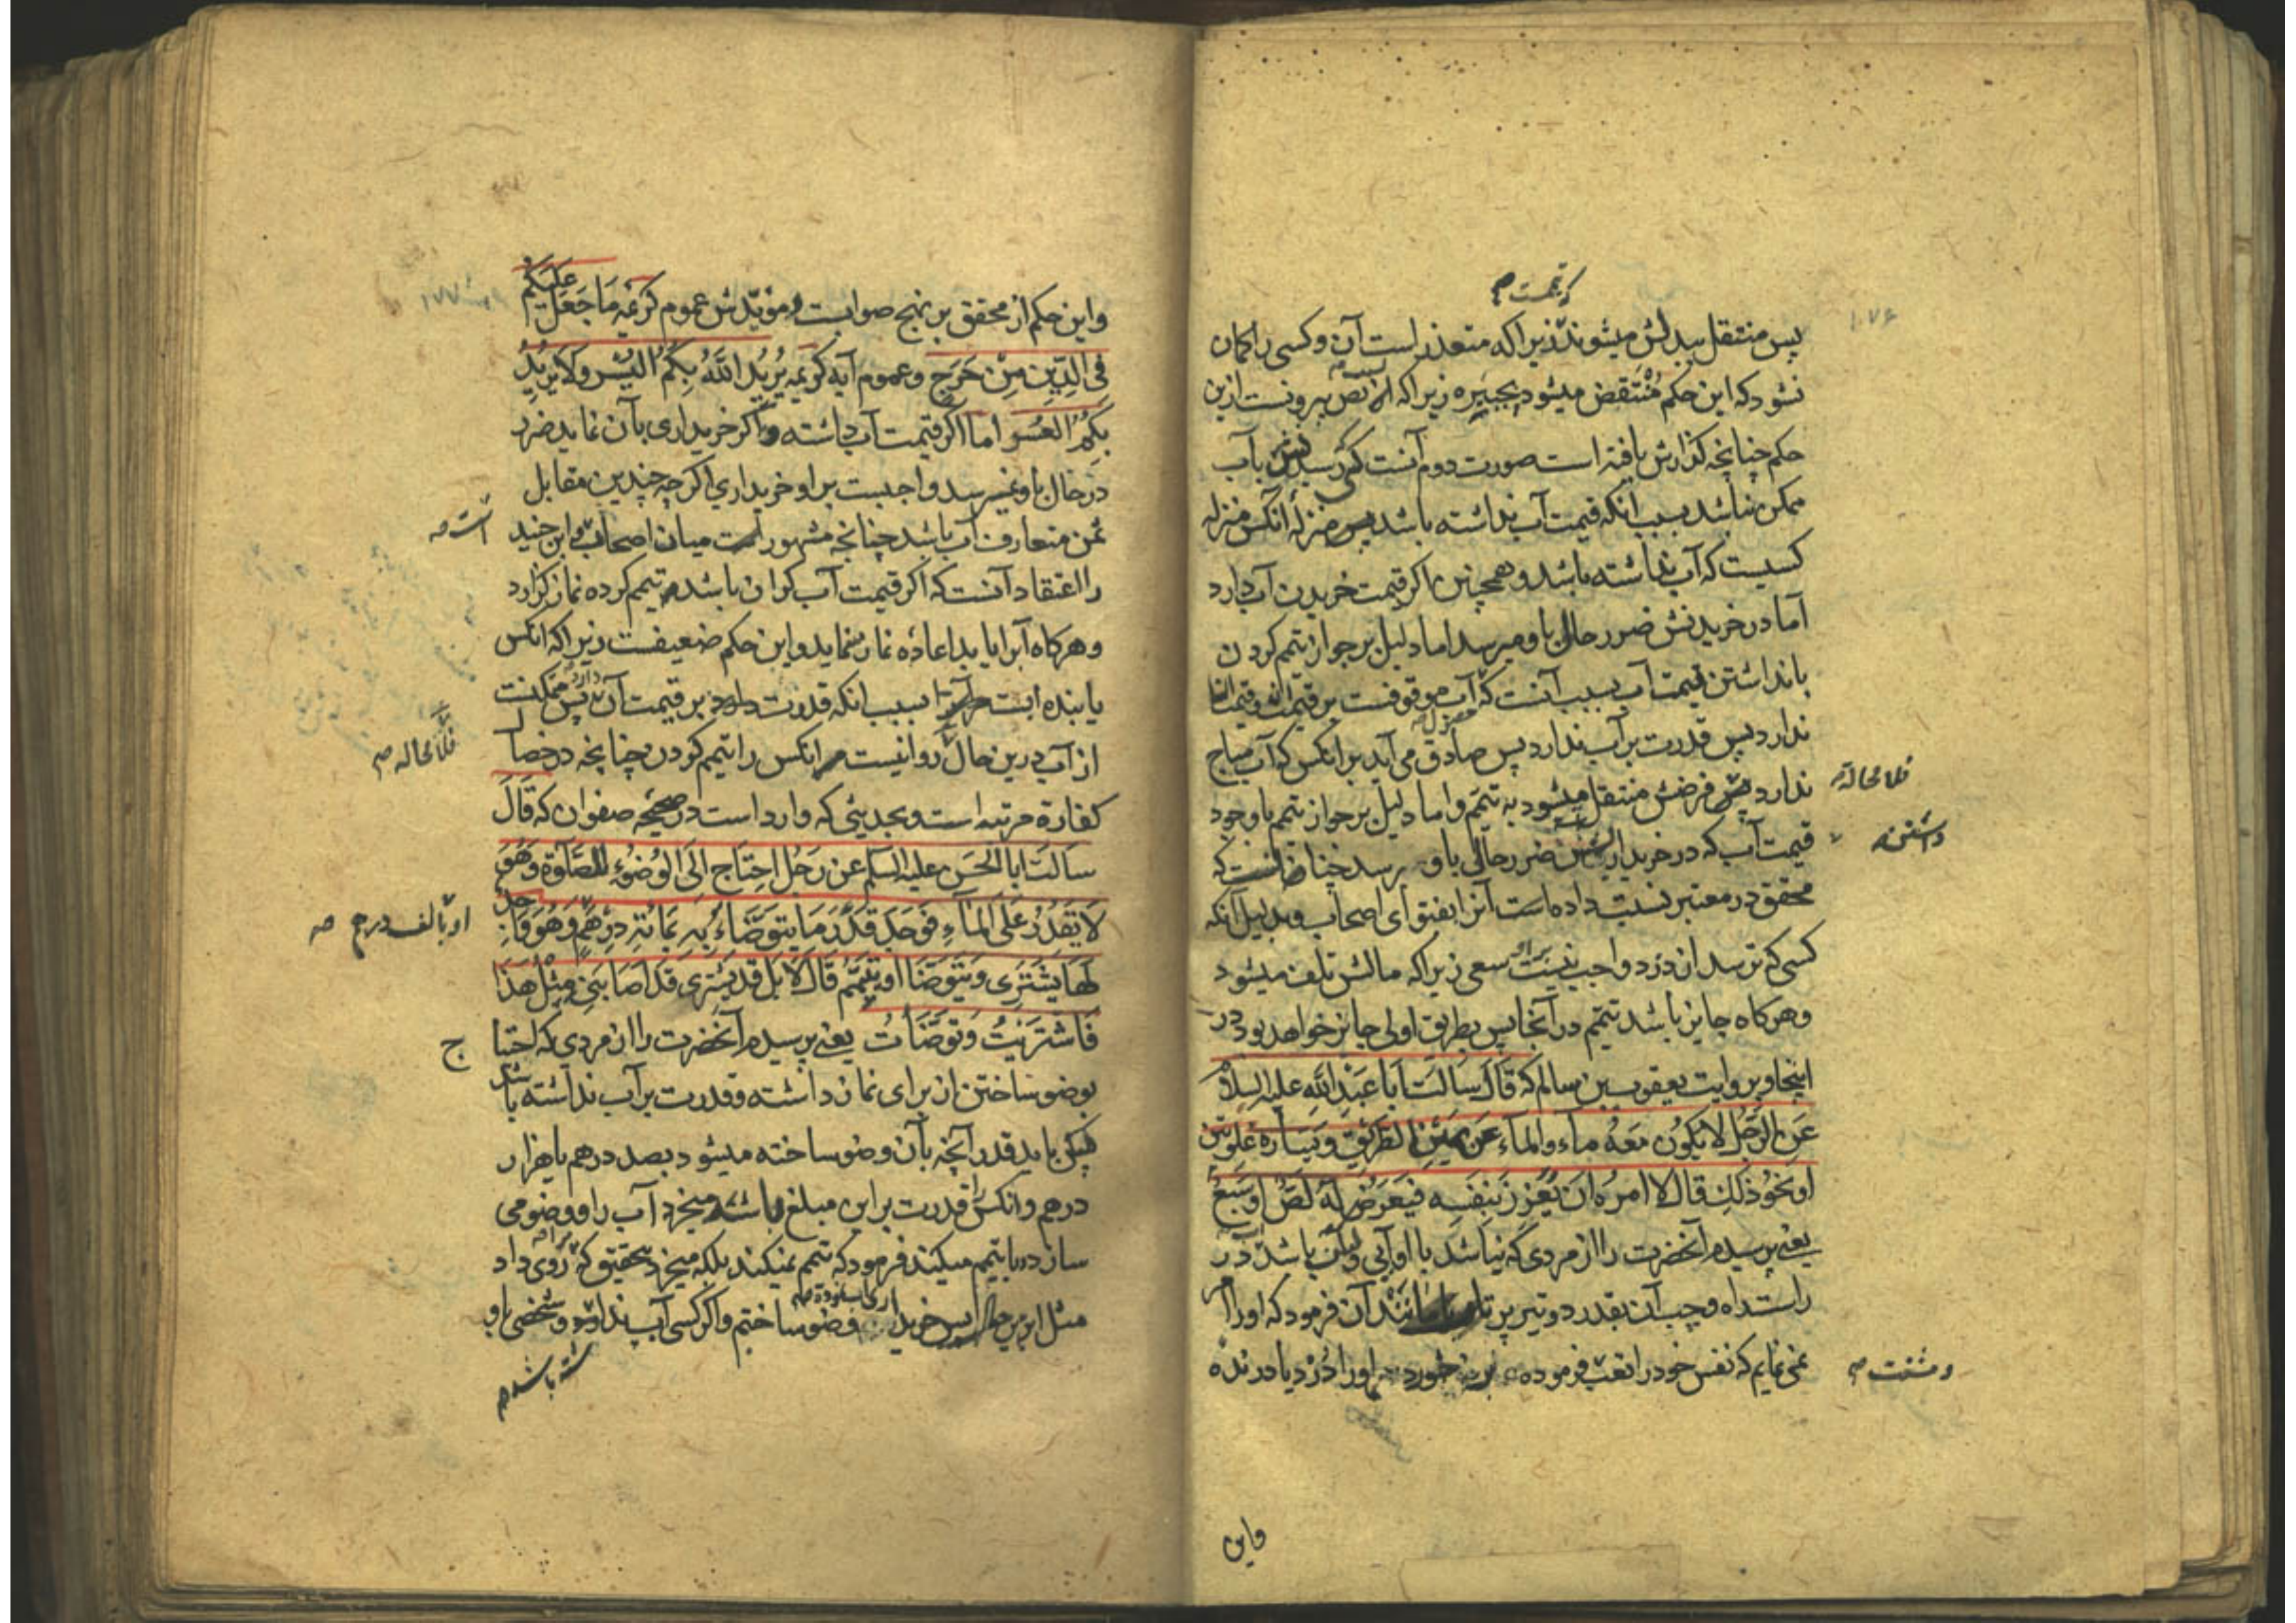 پس منتقل ببدلش میشوند زیراکه متعذر است آن و کسی را گمان
نشود که این حکم مُنْتَقِض میشود بجبیره زیراکه از نص بیرونست ازین
حکم چنانچه گذارش یافته است صورت دوم آنست که رسیدنش بآب
ممکن نباشد بسبب آنکه قیمت آب نداشته باشد پس منزلهٔ آنکس منزله
کسیست که آب نداشته باشد و همچنین اگر قیمت خریدن آب دارد
اما در خریدنش ضرر حال باو میرسد اما دلیل بر جواز تیمم کردن
با نداشتن قیمت آب بسبب آنست که آب موقوفست بر قیمت
ندارد پس قدرت بر آب ندارد پس صادق می آید بر آنکس که آب مباح
ندارد پس فرضش منتقل میشود به تیمم و اما دلیل بر جواز تیمم با وجود
قیمت آب که در خریداریش ضرر حالی باو رسد چنانست که
محقق در معتبر نسبت داده است آنرا بفتوای اصحاب و بدلیل آنکه
کسی که ترسد از دزد واجب نیست سعی زیراکه مالش تلف میشود
و هرگاه جایز باشد تیمم در آنجا پس بطریق اولی جایز خواهد بود در
اینجا و بروایت یعقوب بن سالم که قَالَ سَالَتُ اَبَا عَبْدِاللَّهِ علیه السلام
عَنِ الرَّجُلِ لَا یَکُونُ مَعَهُ ماء وَالمَآءُ عَن یَمِیْنِ الطَّرِیْقِ وَیَسَارِهِ غَلْوَتَیْنِ
اَو نَحْوُ ذَلِكَ قَالَ لَا امُرُهُ اَن یُغَرِّرَ بِنَفْسِهِ فَیَعْرِضُ لَهُ لَصٌّ اَوْ سَبُعٌ
یعنی پرسیدم آنحضرت را از مردی که نباشد با او آبی ولیکن باشد آب در
راست راه و چپ آن بقدر دو تیر پرتاب یا مانند آن فرمود که او را امر
نمی نمایم که نفس خود را تعب فرموده او را دزد یا درنده
که قیمت صح
فلا محالة
داشتن صح
و مشقت صح
واین
واین حکم از محقق بر نهج صوابست و مؤیّدش عموم کریمه مَا جَعَلَ عَلَیْکُمْ
فِی الدِّینِ مِنْ حَرَجٍ و عموم آیه کریمه یُرِیْدُ اللَّهُ بِکُمُ الیُسْرَ وَلَا یُرِیْدُ
بِکُمُ العُسْرَ اما اگر قیمت آب داشته و اگر خریداری بآن نماید ضرر
در حال باو نمیرسد واجبست بر او خریداری اگر چه چندین مقابل
ثمن متعارف آب باشد چنانچه مشهور است میان اصحاب و ابن جنید
را اعتقاد آنست که اگر قیمت آب گران باشد تیمم کرده نماز گزارد
و هرگاه آب را بیابد اعاده نماز نماید و این حکم ضعیفست زیراکه آنکس
یابنده است آبرا بسبب آنکه قدرت دارد بر قیمت آن پس متمکنست
از آب درین حال روا نیست آنکس را تیمم کردن چنانچه در خصال
کفارهٔ مرتبه است و بحدیثی که وارد است در صحیحه صفوان که قَالَ
سَالتُ ابَا الحَسَنِ علیه السلام عَن رَجُلٍ احتَاج اِلَی الوُضُوْءِ لِلصَّلٰوةِ وَهُوَ
لَا یَقْدِرُ عَلَی المَآءِ فَوَجَدَ قَدْرَ مَا یَتَوَضَّاءُ بِهِ بِمَائَةِ دِرْهَمٍ وَهُوَ وَاجِدٌ
لَهَا یَشْتَرِی وَیَتَوَضَّا اَو یَتَیَمَّمُ قَالَ لَا بَل قَد یَشْتَرِی قَد اَصَابَنِی مِثْلُ هَذَا
فَاشْتَرَیْتُ وَتَوَضَّأتُ یعنی پرسیدم آنحضرت را از مردی که احتیاج
بوضو ساختن از برای نماز داشته و قدرت بر آب نداشته باشد
پس بیابد قدر آنچه بآن وضو ساخته میشود بصد درهم یا هزار
درهم و آنکس را قدرت بر این مبلغ باشد میخرد آب را و وضو می
سازد یا تیمم میکند فرمود که تیمم نمیکند بلکه میخرد بتحقیق که روی داد
مثل این پس خریداری نموده وضو ساختم و اگر کسی آب نداشته و شخصی باو
است صح
فلا محاله صح
او بالف درهم صح
ج
شته باشد صح